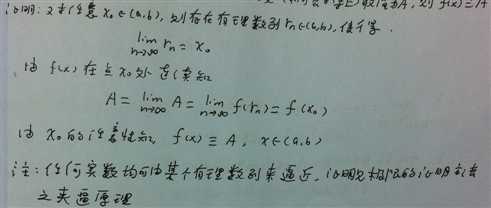 证明：对任意 x₀∈(a,b), 则存在有理数列 rₙ∈(a,b), 使得
lim n→∞ rₙ = x₀
由 f(x) 在点 x₀ 处连续知
A = lim n→∞ A = lim n→∞ f(rₙ) = f(x₀)
由 x₀ 的任意性知, f(x) ≡ A, x∈(a,b)
注：任何实数均可由某个有理数列来逼近, 证明见极限的证明方法
之夹逼原理